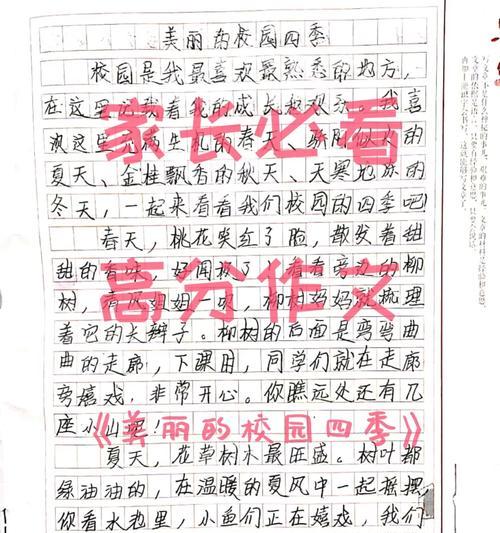 美丽的校园四季
校园是我最喜欢最熟悉的地方，
在这里记载着我的成长和欢乐。我喜
欢这里充满生机的春天、骄阳似火的
夏天、金桂飘香的秋天、天寒地冻的
冬天，一起来看看我们校园的四季吧！
春天，桃花笑红了脸，散发着甜
甜的香味，好闻极了！看看旁边的柳
树，春风姐姐一吹，柳树妈妈就梳理
着它的长辫子。柳树的后面是弯弯曲
曲的走廊，下课时，同学们就在走廊
旁嬉戏，非常开心。你瞧远处还有几
座小山呢！
夏天，花草树木最旺盛。树叶都
绿油油的，在温暖的夏风中一起摇摆
你看水池里，小鱼们正在嬉戏，我们
家长必看
高分作文
《美丽的校园四季》